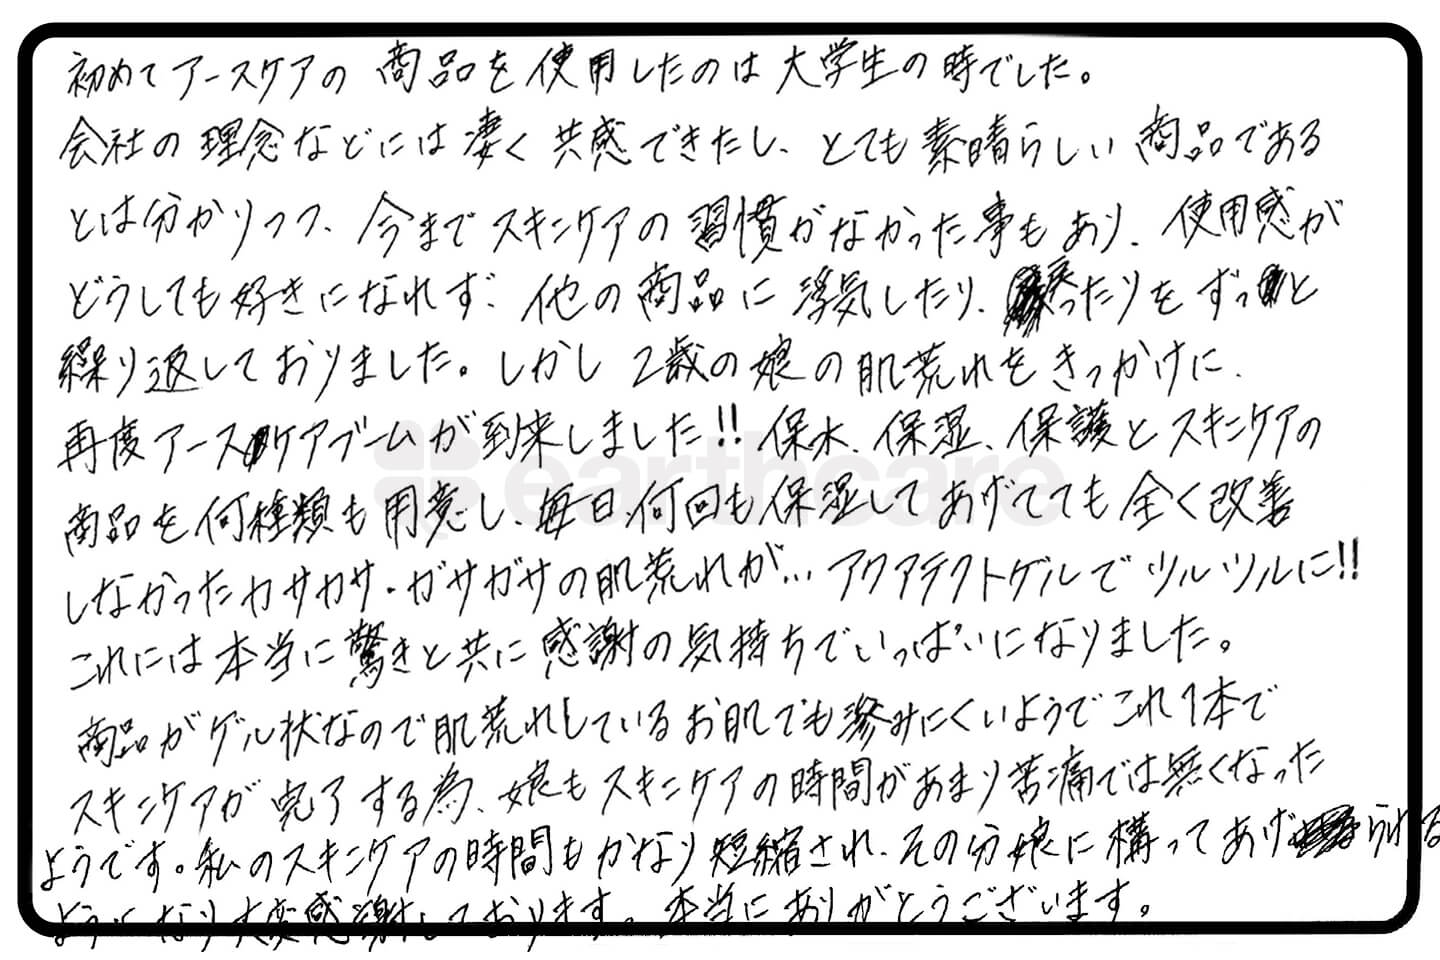 初めてアースケアの商品を使用したのは大学生の時でした。
会社の理念などには凄く共感できたし、とても素晴らしい商品である
とは分かりつつ、今までスキンケアの習慣がなかった事もあり、使用感が
どうしても好きになれず、他の商品に浮気したり、戻ったりをずっと
繰り返しておりました。しかし2歳の娘の肌荒れをきっかけに、
再度アースケアブームが到来しました!!保水、保湿、保護とスキンケアの
商品を何種類も用意し、毎日、何回も保湿してあげてても全く改善
しなかったカサカサ・ガサガサの肌荒れが…アクアテクトゲルでツルツルに!!
これには本当に驚きと共に感謝の気持ちでいっぱいになりました。
商品がゲル状なので肌荒れしているお肌でも滲みにくいようでこれ1本で
スキンケアが完了する為、娘もスキンケアの時間があまり苦痛では無くなった
ようです。私のスキンケアの時間もかなり短縮され、その分娘に構ってあげられる
ようになり大変感謝しております。本当にありがとうございます。
earthcare